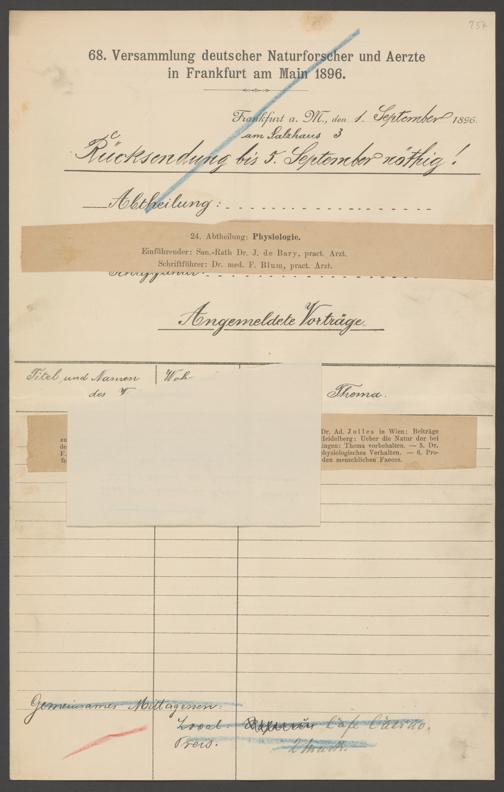 757
68. Versammlung deutscher Naturforscher und Aerzte
in Frankfurt am Main 1896.
Frankfurt a. M., den 1. September 1896.
am Salzhaus 3
Rücksendung bis 5. September nöthig!
Abtheilung:
24. Abtheilung: Physiologie.
Einführender: San.-Rath Dr. J. de Bary, pract. Arzt.
Schriftführer: Dr. med. F. Blum, pract. Arzt.
Angemeldete Vorträge.
Titel und Namen
des V
Woh
Thema.
Dr. Ad. Jolles in Wien: Beiträge
zu
Heidelberg: Ueber die Natur der bei
de
ingen: Thema vorbehalten. — 5. Dr.
F.
physiologisches Verhalten. — 6. Pro-
den menschlichen Faeces.
Gemeinsames Mittagessen:
Local: Café
Preis.